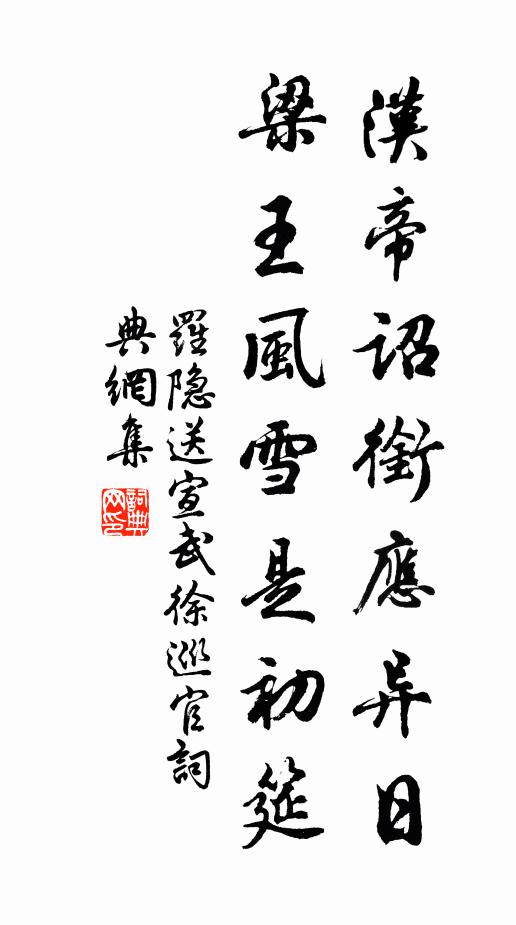 漢帝詔銜應异日
梁王風雪是初筵
羅隐送宣武徐巡官詞
典網集
詞典
网印